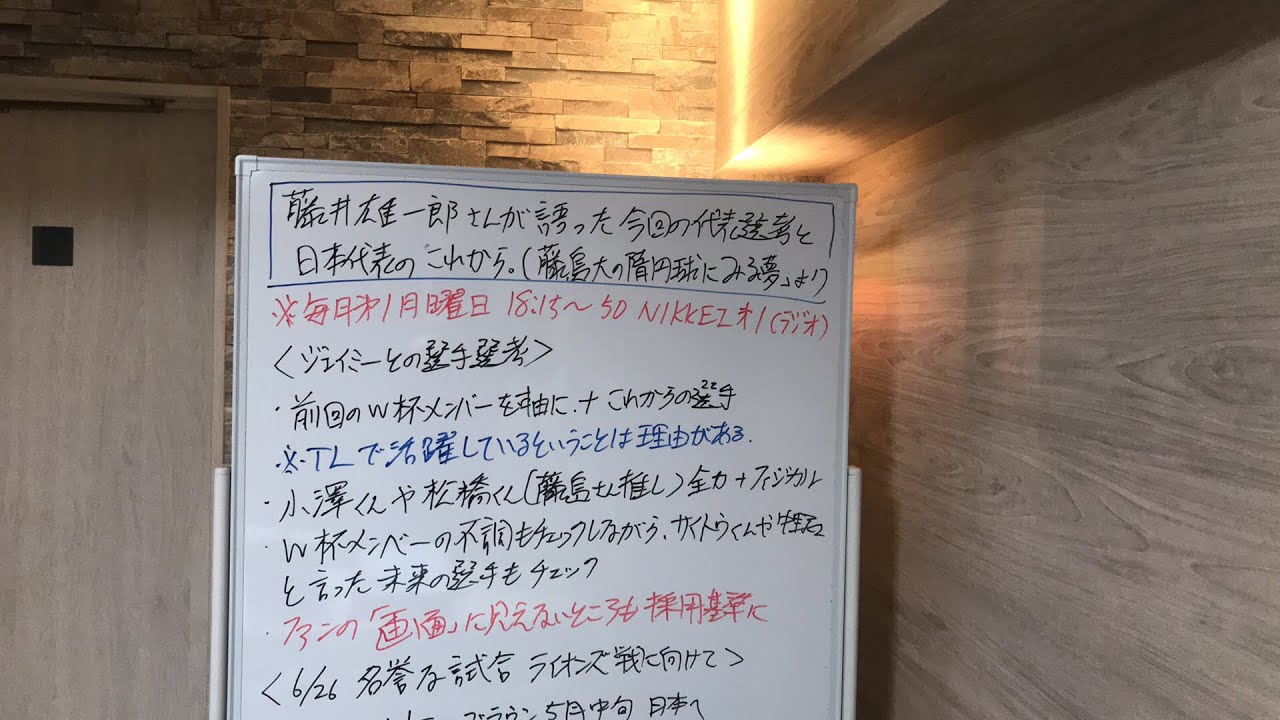 藤井雄一郎さんが語った今回の代表選考と
日本代表のこれから。(藤島大の楕円球にみる夢」より
※毎月オ1月曜日 18:15〜50 NIKKEIオ1(ラジオ)
<ジェイミーとの選手選考>
・前回のW杯メンバーを軸に、+これからの選手
※TLで活躍しているということは理由がある。
・小澤くんや松橋くん(藤島さん推し)全力+フィジカル
・W杯メンバーの不調もチェックしながら、サイトウくんや
と言った未来の選手もチェック
・ファンの「画面」に見えないところも採用基準に
<6/26 名誉な試合 ライオンズ戦に向けて>
ブラウン5月中旬 日本へ